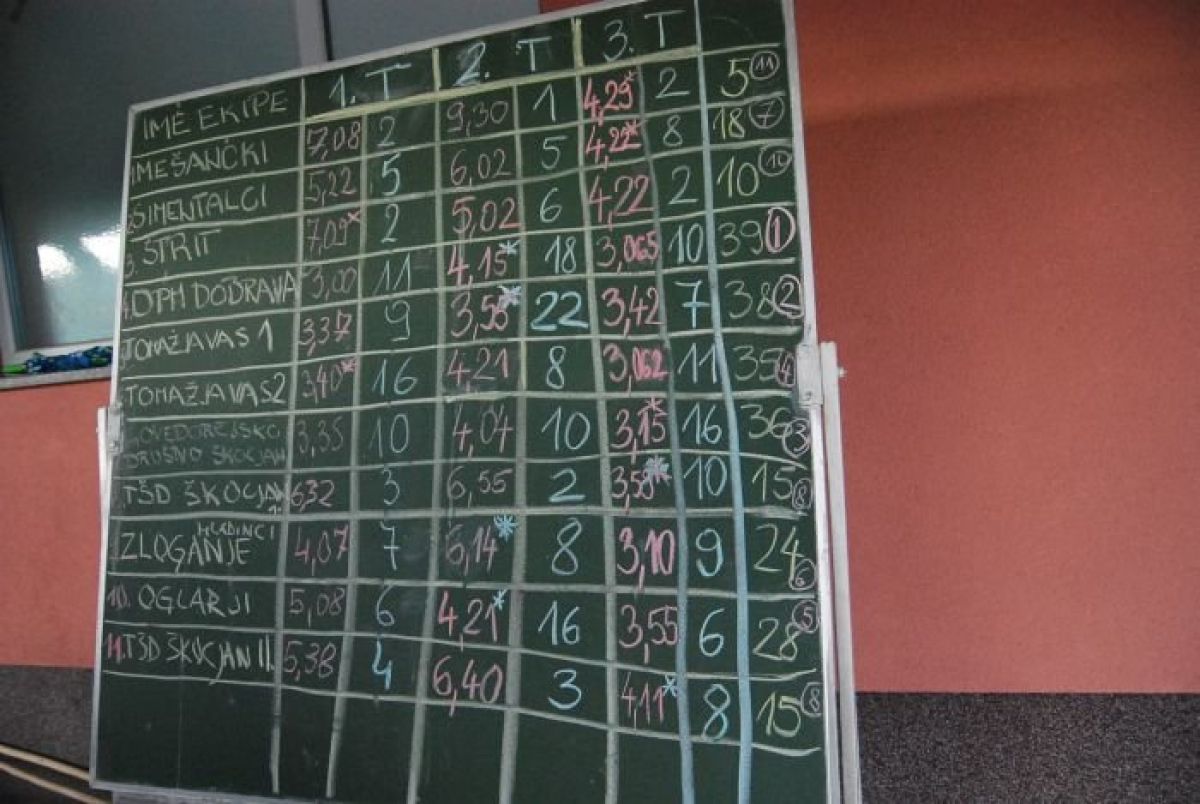 IME EKIPE 1. T 2. T 3. T
1. MEŠANČKI 7,08 2 9,30 1 4,29* 2 5 (11)
2. SIMENTALCI 5,22 5 6,02 5 4,22* 8 18 (7)
3. ŠTRIT 7,09* 2 5,02 6 4,22 2 10 (10)
4. DPM DOBRAVA 3,00 11 4,15* 18 3,065 10 39 (1)
TOMAŽJA VAS 1 3,37 9 3,55* 22 3,42 7 38 (2)
TOMAŽJA VAS 2 3,40* 16 4,21 8 3,062 11 35 (4)
GOVEDOREJSKO
DRUŠTVO ŠKOCJAN 3,35 10 4,04 10 3,15* 16 36 (3)
TŠD ŠKOCJAN 1. 6,32 3 6,55 2 3,58* 10 15 (8)
MLADINCI
ZLOGANJE 4,07 7 6,14* 8 3,10 9 24 (6)
10. OGLARJI 5,08 6 4,21* 16 3,55 6 28 (5)
11. TŠD ŠKOCJAN II. 5,38 4 6,40 3 4,11* 8 15 (8)